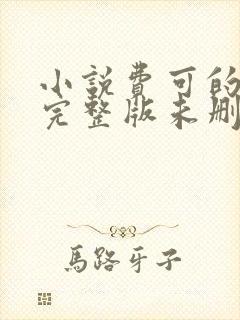 小說費可的
完整版未刪
馬路牙子